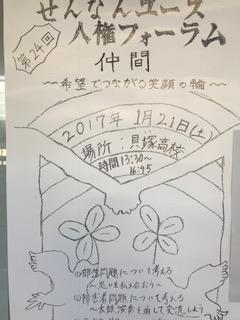 せんなんユース
第24回
人権フォーラム
仲間
～希望でつながる笑顔の輪～
2017年 1月21日(土)
場所：貝塚高校
時間 13:30～
16:45
①部落問題について考える
～思いを伝え合おう～
②障害者問題について考える
～太鼓演奏を通して交流しよう